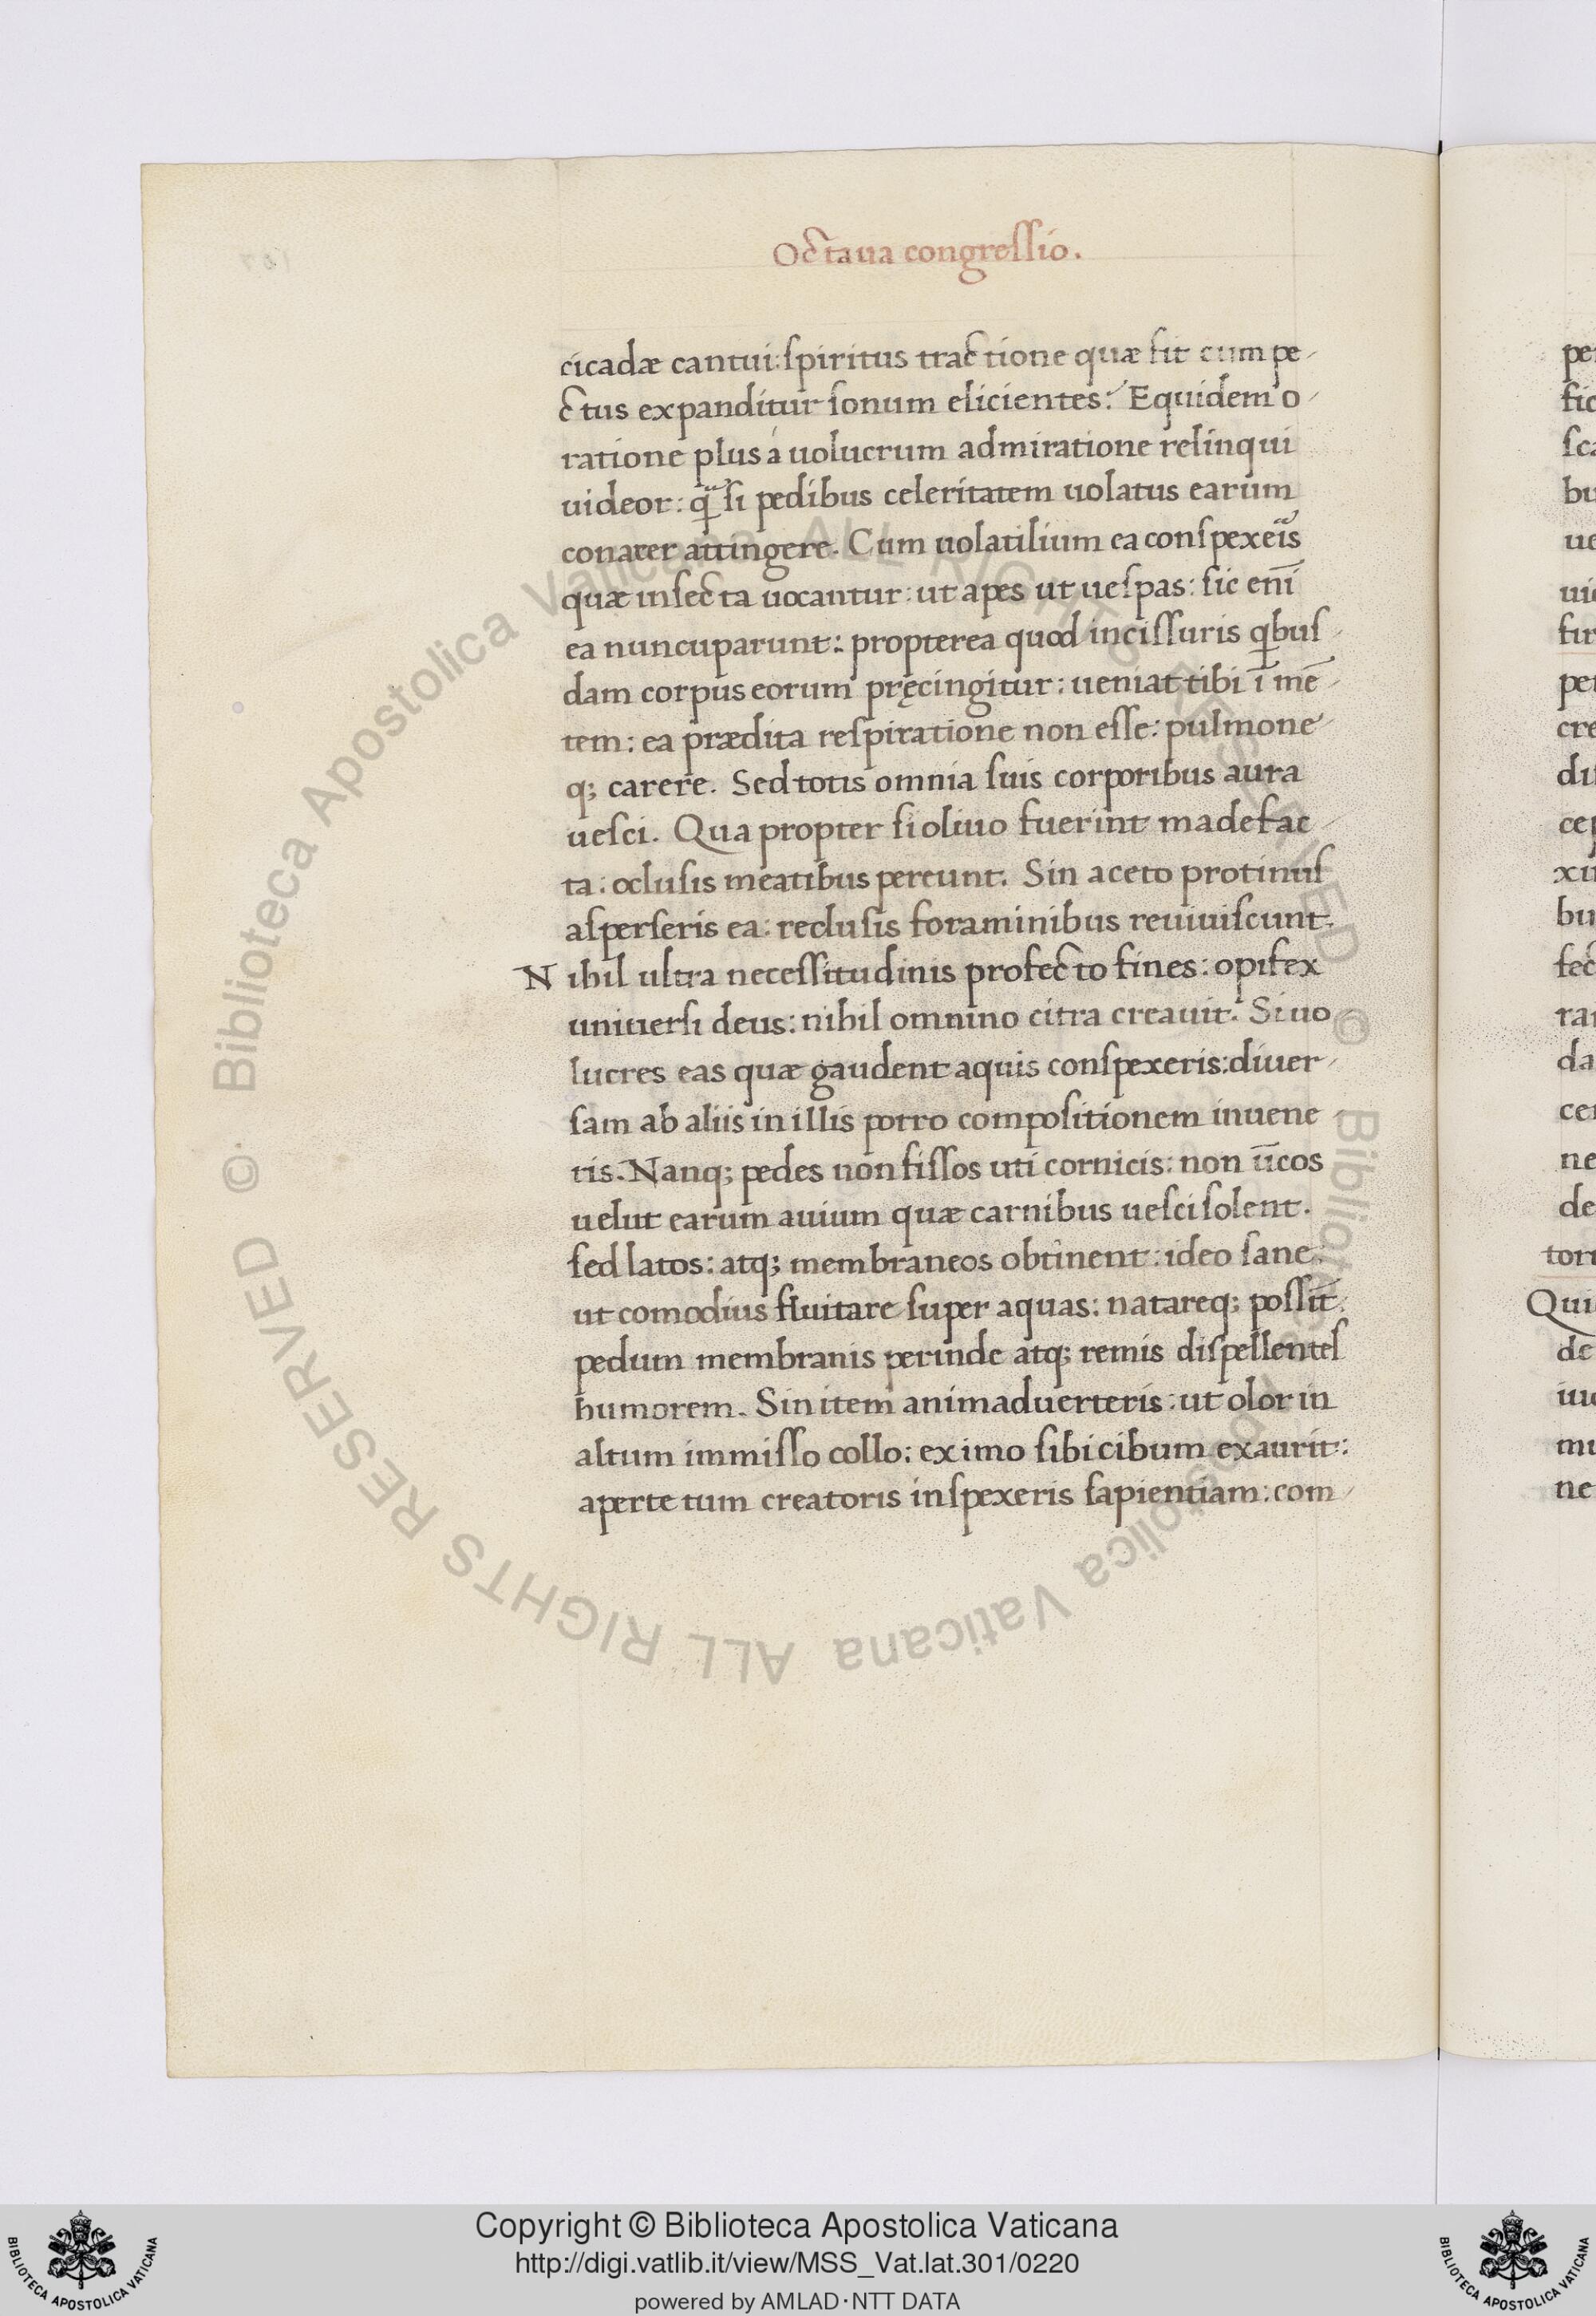 Octaua congreſſio.
cicadæ cantui: ſpiritus tractione quæ fit cum pe
ctus expanditur ſonum elicientes: Equidem o
ratione plus á uolucrum admiratione relinqui
uideor: ſi pedibus celeritatem uolatus earum
conarer attingere. Cum uolatilium ea conſpexeris
quæ inſecta uocantur: ut apes ut ueſpas: ſic eni̅
ea nuncuparunt: propterea quod inciſſuris qbuſ
dam corpus eorum pręcingitur: ueniat tibi i̅ me̅
tem: ea prædita reſpiratione non eſſe: pulmone
q; carere. Sed totis omnia ſuis corporibus aura
ueſci. Qua propter ſi oliuo fuerint madefac
ta: ocluſis meatibus pereunt. Sin aceto protinuſ
aſperſeris ea: recluſis foraminibus reuiuiſcunt.
Nihil ultra neceſſitudinis profecto fines: opifex
uniuerſi deus: nihil omnino citra creauit. Si uo
lucres eas quæ gaudent aquis conſpexeris: diuer
ſam ab aliis in illis porro compoſitionem inuene
ris. Nanq; pedes non fiſſos uti cornicis: non u̅cos
uelut earum auium quæ carnibus ueſci ſolent.
ſed latos: atq; membraneos obtinent: ideo ſane:
ut comodius fluitare ſuper aquas: natareq; poſſit:
pedum membranis perinde atq; remis diſpellenteſ
humorem. Sin item animaduerteris: ut olor in
altum immiſſo collo: ex imo ſibi cibum exaurit:
aperte tum creatoris inſpexeris ſapientiam: com
pe
ne
Qui
© Biblioteca Apostolica Vaticana ALL RIGHTS RESERVED © Biblioteca Apostolica Vaticana ALL RIGHTS RESERVED
Copyright © Biblioteca Apostolica Vaticana
http://digi.vatlib.it/view/MSS_Vat.lat.301/0220
powered by AMLAD·NTT DATA
BIBLIOTECA APOSTOLICA VATICANA
BIBLIOTECA APOSTOLICA VATICANA